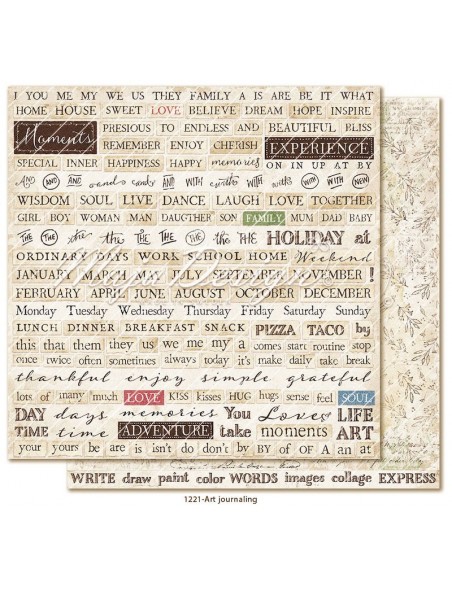 I YOU ME MY WE US THEY FAMILY A IS ARE BE IT WHAT
HOME HOUSE SWEET LOVE BELIEVE DREAM HOPE INSPIRE
Moments PRESIOUS TO ENDLESS AND BEAUTIFUL BLISS
REMEMBER ENJOY CHERISH EXPERIENCE
SPECIAL INNER HAPPINESS HAPPY memories ON IN UP AT BY
AND AND AND and and AND with WITH with WITH WITH WITH
WISDOM SOUL LIVE DANCE LAUGH LOVE TOGETHER
GIRL BOY WOMAN MAN DAUGTHER SON FAMILY MUM DAD BABY
THE THE the the THE THE THE the THE HOLIDAY at
ORDINARY DAYS WORK SCHOOL HOME Weekend
JANUARY MARCH MAY JULY SEPTEMBER NOVEMBER !
FERRUARY APRIL JUNE AUGUST OCTOBER DECEMBER
Monday Tuesday Wednesday Thursday Friday Saturday Sunday
LUNCH DINNER BREAKFAST SNACK PIZZA TACO by
this that them they us we me my a comes start routine stop
once twice often sometimes always today it's make daily take break
thankful enjoy simple grateful
lots of many much LOVE KISS kisses HUG hugs sense feel SOUL
DAY days memories You Love LIFE
TIME time ADVENTURE take moments ART
your yours be are is isn't do don't by BY of OF A an at
WRITE draw paint color WORDS images collage EXPRESS
1221-Art journaling